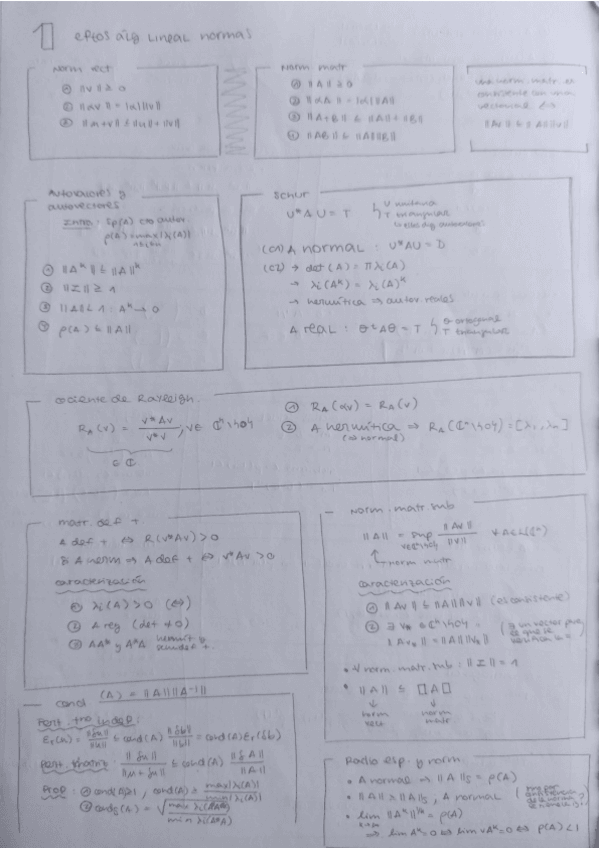 1 cptos álg lineal normas
norm vect
① ||v|| ≥ 0
② ||αv|| = |α| ||v||
③ ||u+v|| ≤ ||u|| + ||v||
norm matr
① ||A|| ≥ 0
② ||αA|| = |α| ||A||
③ ||A+B|| ≤ ||A|| + ||B||
④ ||AB|| ≤ ||A|| ||B||
una norm. matr. es
consistente con una
vectorial ⇔
||Av|| ≤ ||A|| ||v||
Autovalores y
autovectores
Sp(A) autov.
ρ(A) = max |λi(A)|
① ||A^k|| ≤ ||A||^k
② ||I|| ≥ 1
③ ||A|| < 1 : A^k → 0
④ ρ(A) ≤ ||A||
Schur
U*AU = T
U unitaria
T triangular
(C1) A normal : U*AU = D
(C2) → det(A) = Πλi(A)
→ λi(A^k) = λi(A)^k
→ hermítica ⇒ autov reales
A real : θ^t A θ = T
θ ortogonal
T triangular
cociente de Rayleigh
R_A(v) = v*Av / v*v ; v ∈ ℂ^n \ {0}
∈ ℂ
① R_A(αv) = R_A(v)
② A hermítica ⇒ R_A(ℂ^n \ {0}) = [λ1, λn]
(⇒ normal)
matr. def +
A def + ⇔ R(v*Av) > 0
Si A herm ⇒ A def + ⇔ v*Av > 0
caracterización
① λi(A) > 0 (⇔)
② A reg (det ≠ 0)
③ AA* y A*A hermít y
semidef +.
norm. matr sub
||A|| = sup ||Av|| / ||v||
v ∈ ℂ^n \ {0}
norm matr
caracterización
① ||Av|| ≤ ||A|| ||v|| (es consistente)
② ∃ v_A ∈ ℂ^n \ {0} =
||A v_A|| = ||A|| ||v_A||
• ∀ norm. matr. sub : ||I|| = 1
• ||A|| ≤ ▯A▯
norm
norm
matr
cond (A) = ||A|| ||A^-1||
εr(u) = ||δu|| / ||u|| ≤ cond(A) ||δb|| / ||b|| = cond(A) εr(δb)
||δu|| / ||u + δu|| ≤ cond(A) ||δA|| / ||A||
Prop : ① cond(A) ≥ 1, cond(A) ≥ max|λi(A)| / min|λi(A)|
② cond₂(A) = √ max λi(A*A) / min λi(A*A)
Radio esp. y norm
• A normal ⇒ ||A||₂ = ρ(A)
• ||A|| ≥ ||A||₂, A normal
• lim ||A^k||^1/k = ρ(A)
⇒ lim A^k = 0 ⇔ lim vA^k = 0 ⇔ ρ(A) < 1